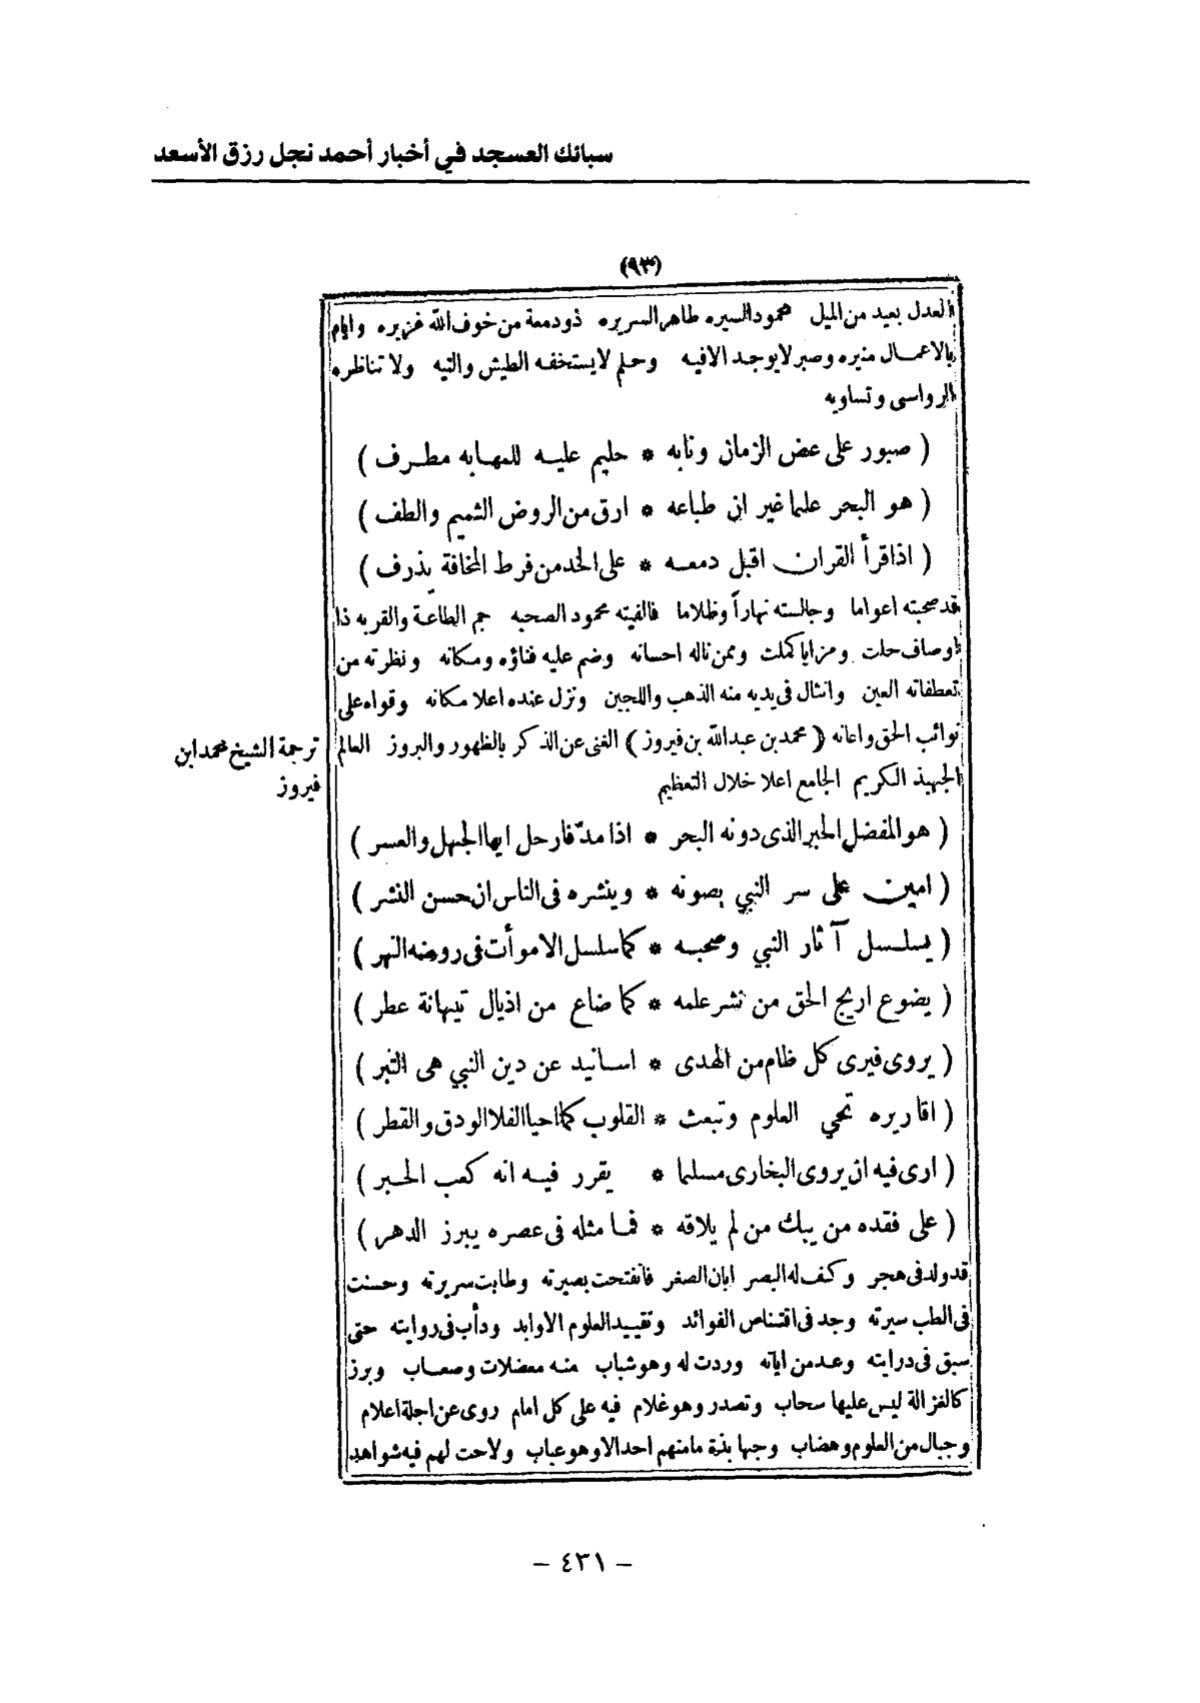 سبائك العسجد في أخبار أحمد نجل رزق الأسعد
(٩٣)
العدل بعيد من الميل محمود السيره طاهر السريره ذو دمعة من خوف الله غزيره وايام
بالاعمال منيره وصبر لا يوجد الا فيه وحلم لا يستخفه الطيش والتيه ولا تناظره
الرواسى وتساويه
( صبور على عض الزمان ونابه * حليم عليه للمهابه مطرف )
( هو البحر علما غير ان طباعه * ارق من الروض الشميم والطف )
( اذا قرأ القران اقبل دمعه * على الخد من فرط المخافة يذرف )
قد صحبته اعواما وجالسته نهاراً وظلاما فالفيته محمود الصحبه جم الطاعة والقربه ذا
اوصاف حلت ومزايا كملت وممن ناله احسانه وضم عليه فناؤه ومكانه ونظرته من
تعطفاته العين وانثال فى يديه منه الذهب واللجين ونزل عنده اعلا مكانه وقواه على
نوائب الحق واعانه ( محمد بن عبدالله بن فيروز ) الغنى عن الذكر بالظهور والبروز العالم
ترجمة الشيخ محمد ابن
فيروز
الجهبذ الكريم الجامع اعلا خلال التعظيم
( هو المفضل الحبر الذى دونه البحر * اذا مدّ فارحل ايها الجهل والعسر )
( امين على سر النبي يصونه * وينشره فى الناس ان حسن النشر )
( يسلسل آثار النبي وصحبه * كما سلسل الامواْت فى روضه النهر )
( يضوع اريج الحق من نشر علمه * كما ضاع من اذيال تيهانة عطر )
( يروى فيرى كل ظام من الهدى * اسانيد عن دين النبي هى التبر )
( اقاريره تحي العلوم وتبعث * القلوب كما احيا الفلا الودق والقطر )
( ارى فيه ان يروى البخارى مسلما * يقرر فيه انه كعب الحبر )
( على فقده من يبك من لم يلاقه * فما مثله فى عصره يبرز الدهر )
قد ولد فى هجر وكف له البصر ابان الصغر فانفتحت بصيرته وطابت سريرته وحسنت
فى الطب سيرته وجد فى اقتناص الفوائد وتقييد العلوم الاوابد ودأب فى روايته حتى
سبق فى درايته وعد من اياته وردت له وهو شباب منه معضلات وصعاب وبرز
كالغزالة ليس عليها سحاب وتصدر وهو غلام فيه على كل امام روى عن اجلة اعلام
وجبال من العلوم وهضاب وجهابذة ما منهم احد الا وهو عباب ولاحت لهم فيه شواهد
- ٤٣١ -